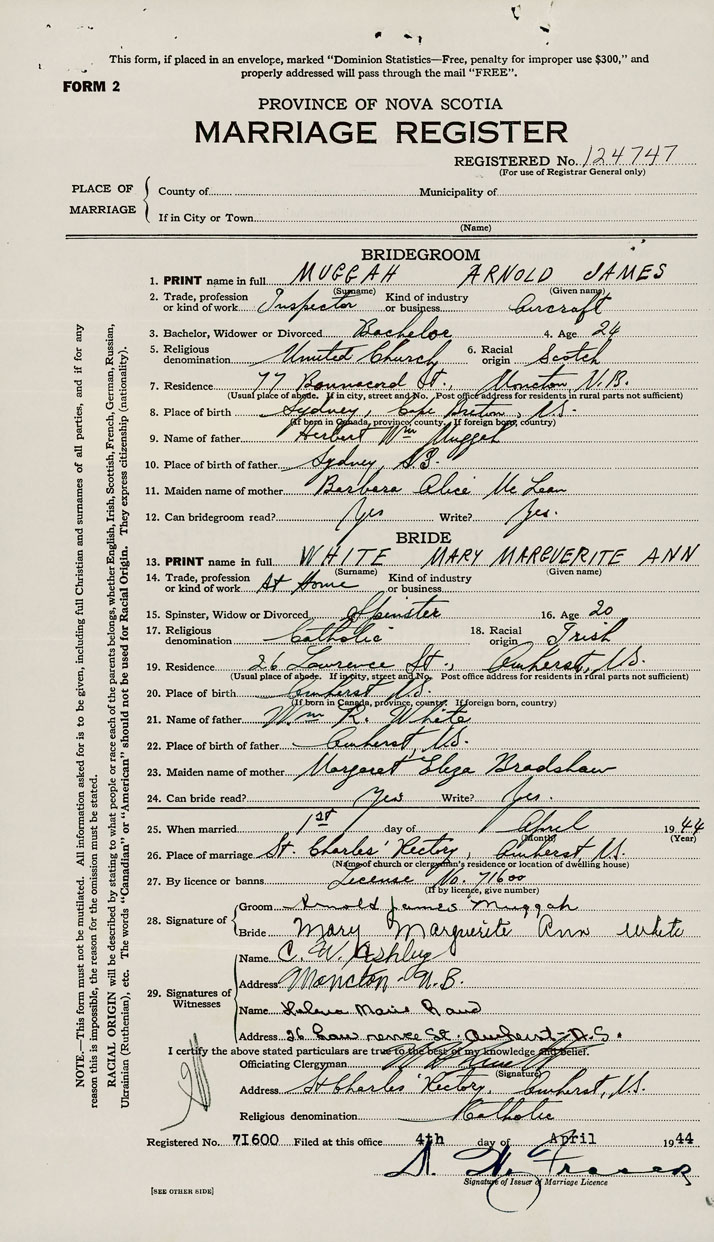 This form, if placed in an envelope, marked "Dominion Statistics—Free, penalty for improper use $300," and
properly addressed will pass through the mail "FREE".
FORM 2
PROVINCE OF NOVA SCOTIA
MARRIAGE REGISTER
REGISTERED No. 124747
(For use of Registrar General only)
PLACE OF MARRIAGE
County of Municipality of
If in City or Town
(Name)
BRIDEGROOM
1. PRINT name in full MUGGAH ARNOLD JAMES
(Surname) (Given name)
2. Trade, profession or kind of work Inspector Kind of industry or business Aircraft
3. Bachelor, Widower or Divorced Bachelor 4. Age 24
5. Religious denomination United Church 6. Racial origin Scotch
7. Residence 77 Bonnacord St., Moncton N.B.
(Usual place of abode. If in city, street and No. Post office address for residents in rural parts not sufficient)
8. Place of birth Sydney, Cape Breton, N.S.
(If born in Canada, province, county. If foreign born, country)
9. Name of father Herbert Wm Muggah
10. Place of birth of father Sydney, C.B.
11. Maiden name of mother Barbara Alice McLean
12. Can bridegroom read? Yes Write? Yes.
BRIDE
13. PRINT name in full WHITE MARY MARGUERITE ANN
(Surname) (Given name)
14. Trade, profession or kind of work At Home Kind of industry or business
15. Spinster, Widow or Divorced Spinster 16. Age 20
17. Religious denomination Catholic 18. Racial origin Irish
19. Residence 26 Lawrence St., Amherst, N.S.
(Usual place of abode. If in city, street and No. Post office address for residents in rural parts not sufficient)
20. Place of birth Amherst N.S.
(If born in Canada, province, county. If foreign born, country)
21. Name of father Wm R. White
22. Place of birth of father Amherst, N.S.
23. Maiden name of mother Margaret Eliza Bradshaw
24. Can bride read? Yes Write? Yes.
25. When married 1st day of April 1944
(Month) (Year)
26. Place of marriage St. Charles' Rectory, Amherst, N.S.
(Name of church or clergyman's residence or location of dwelling house)
27. By licence or banns License No. 71600
(If by licence, give number)
28. Signature of
Groom Arnold James Muggah
Bride Mary Marguerite Ann White
29. Signatures of Witnesses
Name C. W. Ashley
Address Moncton N.B.
Name Helena Marie Rand
Address 26 Lawrence St. Amherst-N.S.
I certify the above stated particulars are true to the best of my knowledge and belief.
Officiating Clergyman
(Signature)
Address St Charles' Rectory, Amherst, N.S.
Religious denomination Catholic
Registered No. 71600 Filed at this office 4th day of April 1944
Signature of Issuer of Marriage Licence
[SEE OTHER SIDE]
NOTE.—This form must not be mutilated. All information asked for is to be given, including full Christian and surnames of all parties, and if for any
reason this is impossible, the reason for the omission must be stated.
RACIAL ORIGIN will be described by stating to what people or race each of the parents belongs, whether English, Irish, Scottish, French, German, Russian,
Ukrainian (Ruthenian), etc. The words "Canadian" or "American" should not be used for Racial Origin. They express citizenship (nationality).